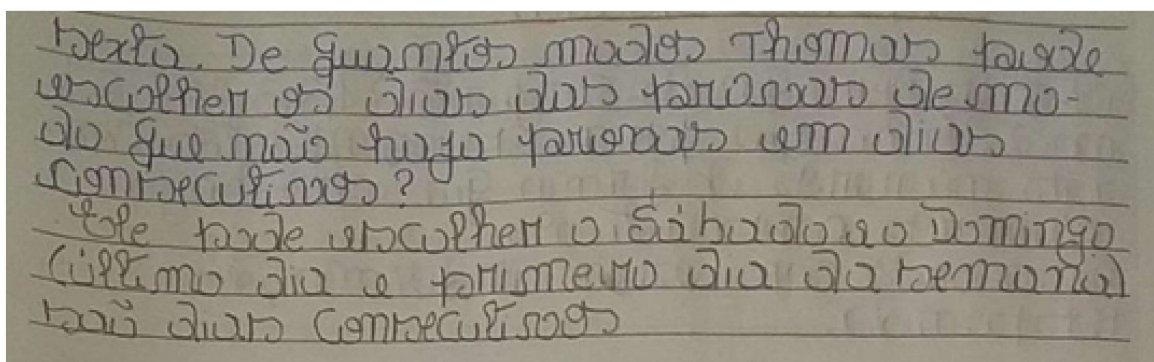 sexta. De quantos modos Thomas pode
escolher os dias das provas de mo-
do que não haja provas em dias
consecutivos?
Ele pode escolher o Sábado ao Domingo
(último dia e primeiro dia da semana)
são dias consecutivos